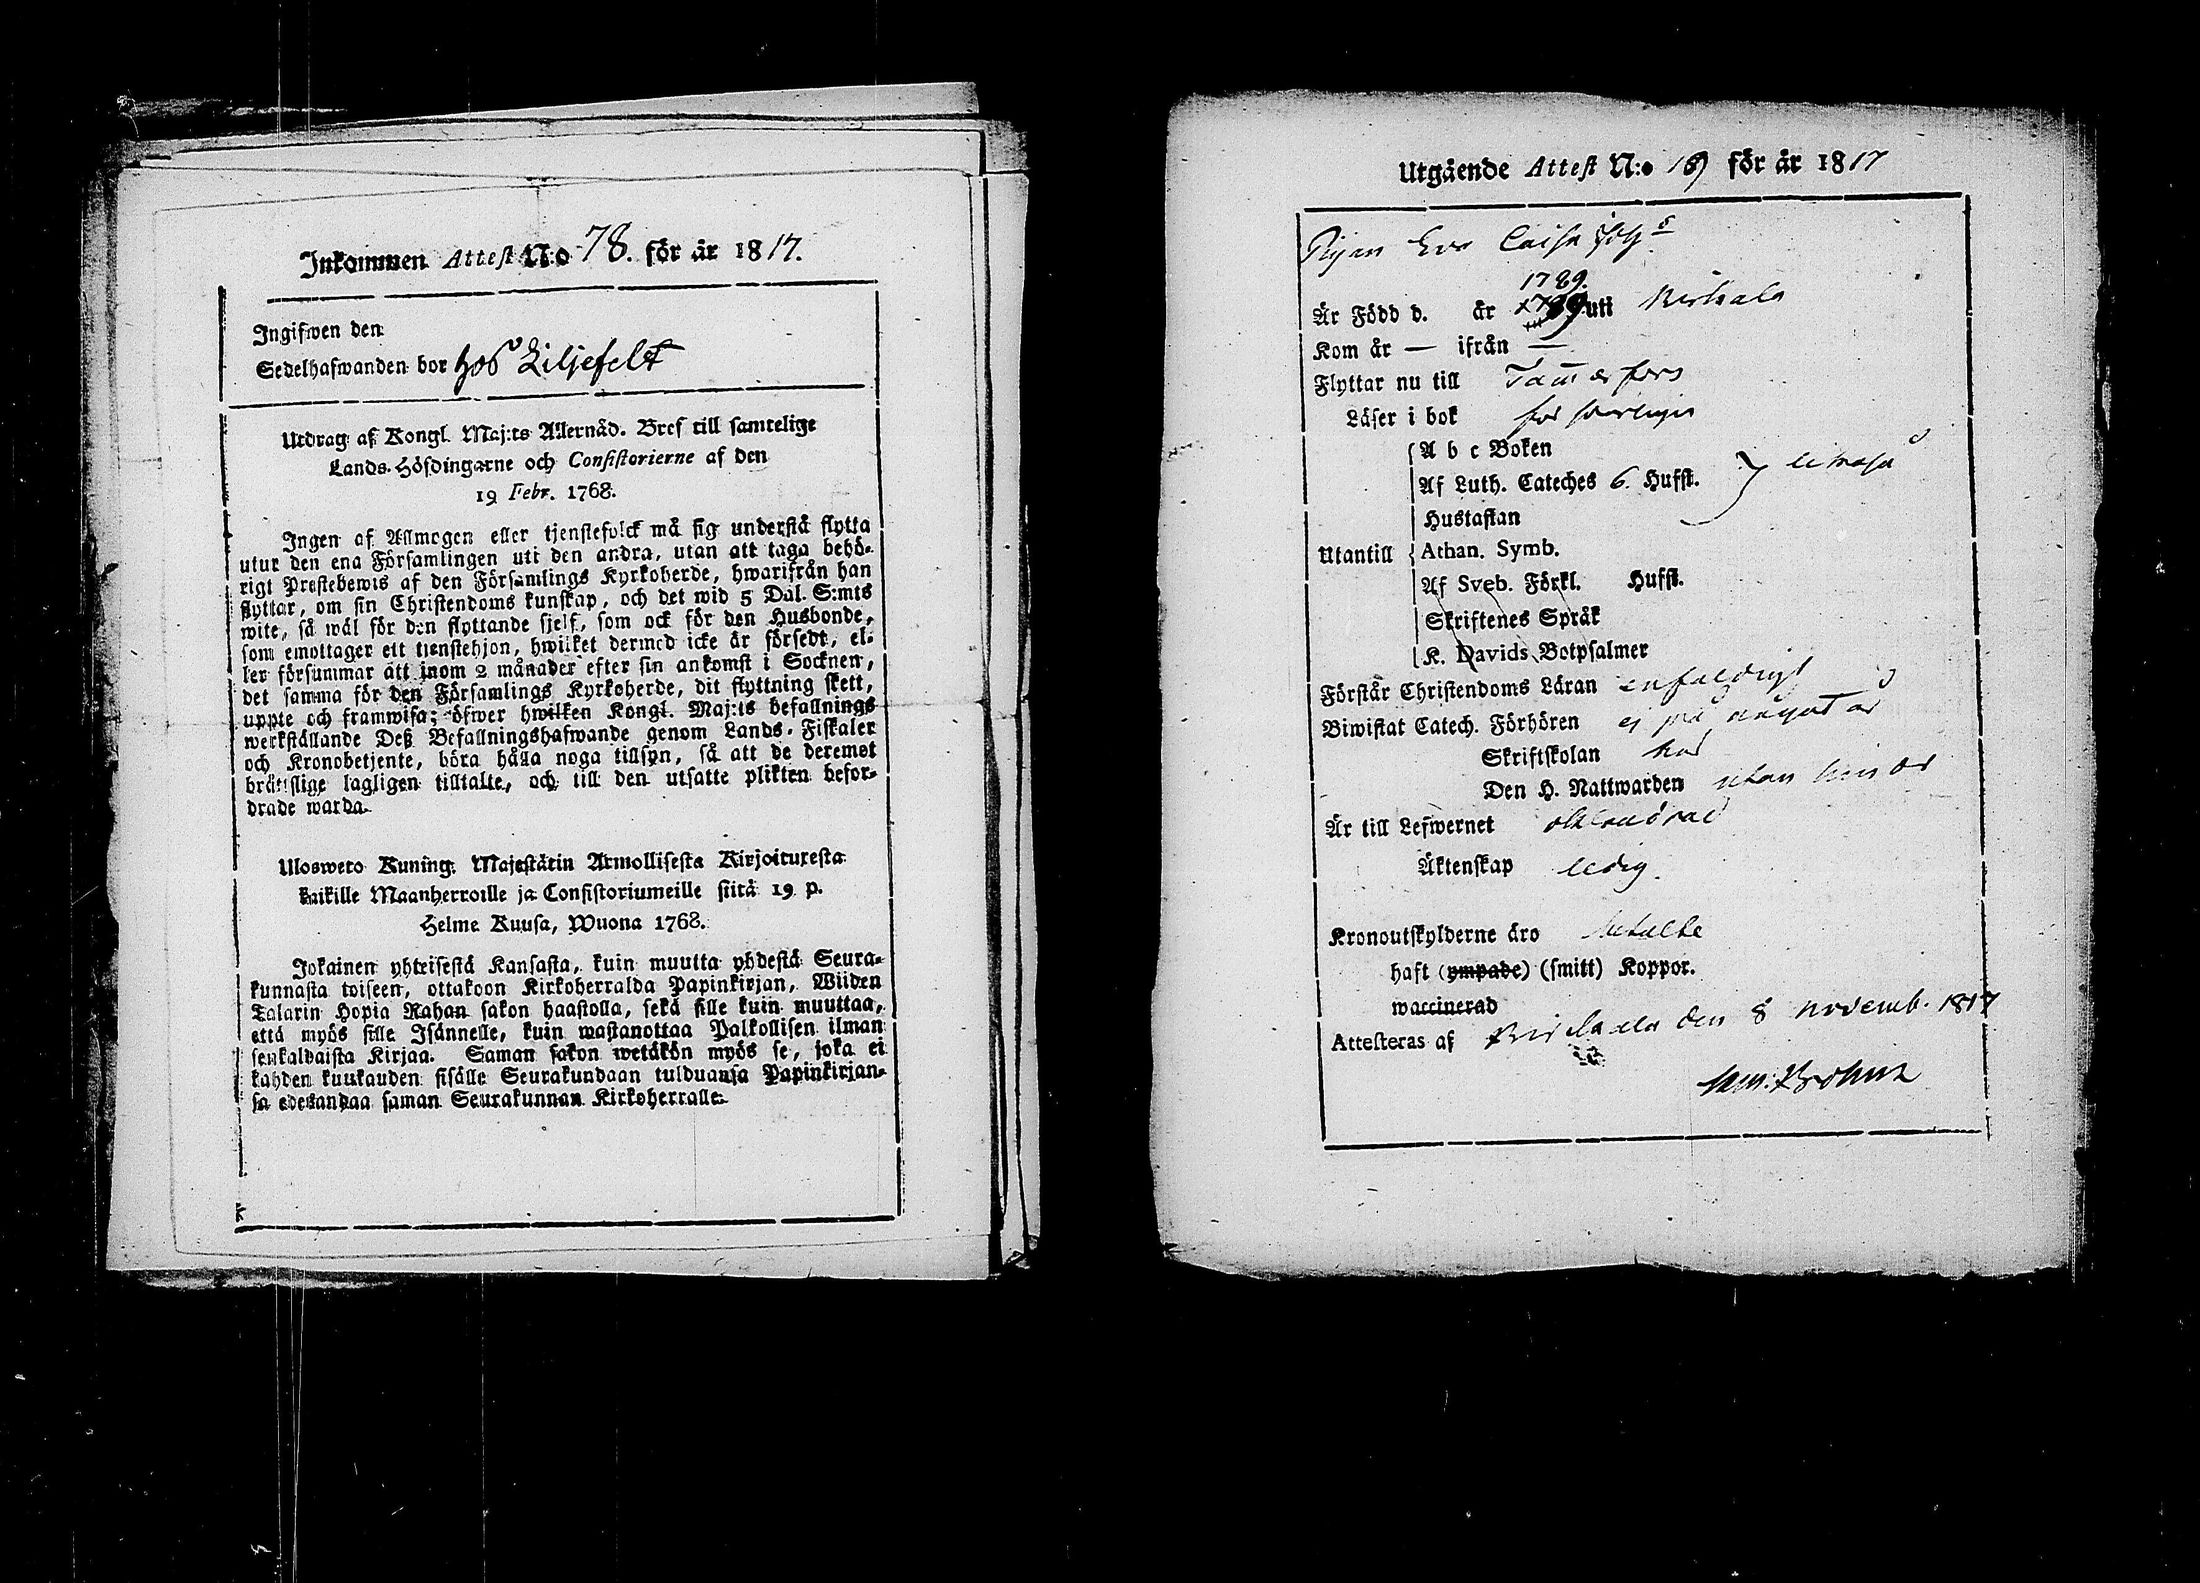 Inkommen Attest N:o 78. för år 1817.
Ingifwen den
Sedelhafwanden bor hos Liljefelt
Utdrag af Kongl. Maj:ts Allernåd. Bref till samtelige
Lands-Höfdingarne och Consistorierne af den
19 Febr. 1768.
Ingen af Allmogen eller tjenstefolck må sig understå flytta
utur den ena Församlingen uti den andra, utan att taga behö-
rigt Prestebewis af den Församlings Kyrkoherde, hwarifrån han
flyttar, om sin Christendoms kunskap, och det wid 5 Dal. S:mts
wite, så wäl för den flyttande sjelf, som ock för den Husbonde,
som emottager ett tjenstehjon, hwilket dermed icke är försedt, el-
ler försummar att inom 2 månader efter sin ankomst i Socknen,
det samma för den Församlings Kyrkoherde, dit flyttning skett,
uppte och framwisa; öfwer hwilken Kongl. Maj:ts befallnings
werkställande Deß Befallningshafwande genom Lands-Fiskaler
och Kronobetjente, böra hålla noga tillsyn, så att de deremot
brättslige lagligen tilltalte, och till den utsatte plikten befor-
drade warda.
Ulosweto Kuning. Majestätin Armollisesta Kirjoituresta
kaikille Maanherroille ja Consistoriumeille siitä 19 p.
Helme Kuusa, Wuona 1768.
Jokainen yhteisestä Kansasta, kuin muutta yhdestä Seura-
kunnasta toiseen, ottakoon Kirkoherralda Papinkirjan, Wiiden
Talarin Hopia Rahan sakon haastolla, sekä sille kuin muuttaa,
että myös sille Isännelle, kuin wastanottaa Palkollisen ilman
senkaldaista Kirjaa. Saman sakon wetäkön myös se, joka ei
kahden kuukauden sisälle Seurakundaan tulduansa Papinkirjan-
sa edesandaa saman Seurakunnan Kirkoherralle.
Utgående Attest N:o 169 för år 1817
Pigan Eva Caisa
1789.
Är Född d. år uti Birkala
Kom år — ifrån —
Flyttar nu till Tammerfors
Läser i bok försvarligen
A b c Boken
Af Luth. Cateches 6. Hufst.
Hustaflan
Utantill Athan. Symb.
Af Sveb. Förkl. Hufst.
Skriftenes Språk
K. Davids Botpsalmer
Förstår Christendoms Läran enfaldigt
Biwistat Catech. Förhören ej på något år
Skriftskolan
Den H. Nattwarden utan hinder
Är till Lefwernet oklandrad
Äktenskap ledig.
Kronoutskylderne äro betalte
haft (ympade) (smitt) Koppor.
waccinerad
Attesteras af Birckala den 8 novemb. 1817